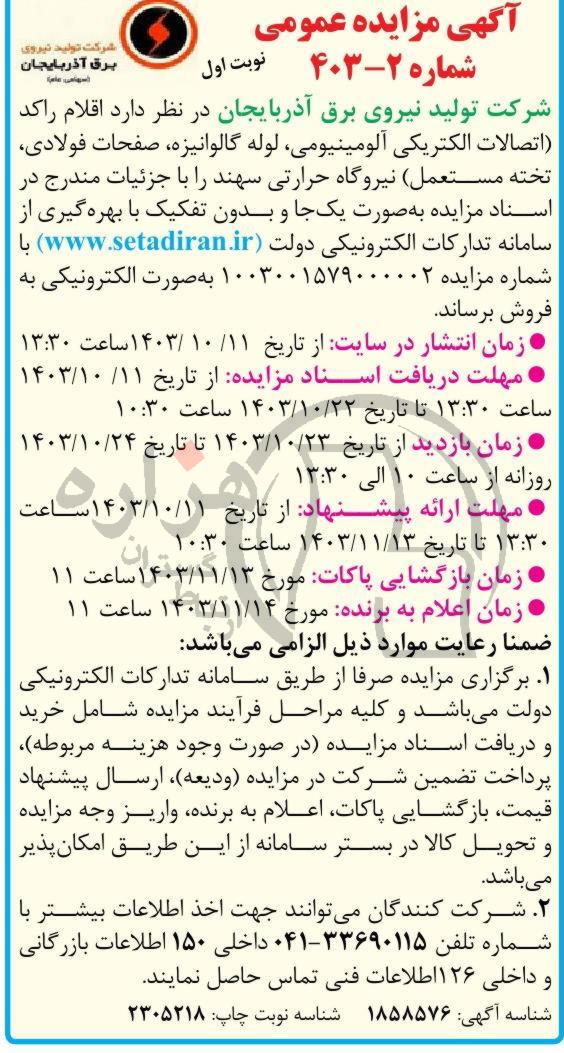 آگهی مزایده عمومی
شماره ۲-۴۰۳
نوبت اول
شرکت تولید نیروی
برق آذربایجان
(سهامی عام)
شرکت تولید نیروی برق آذربایجان در نظر دارد اقلام راکد
(اتصالات الکتریکی آلومینیومی، لوله گالوانیزه، صفحات فولادی،
تخته مستعمل) نیروگاه حرارتی سهند را با جزئیات مندرج در
اسناد مزایده به‌صورت یک‌جا و بدون تفکیک با بهره‌گیری از
سامانه تدارکات الکترونیکی دولت (www.setadiran.ir) با
شماره مزایده ۱۰۰۳۰۰۱۵۷۹۰۰۰۰۰۲ به‌صورت الکترونیکی به
فروش برساند.
● زمان انتشار در سایت: از تاریخ ۱۱/ ۱۰ /۱۴۰۳ساعت ۱۳:۳۰
● مهلت دریافت اسناد مزایده: از تاریخ ۱۱/ ۱۴۰۳/۱۰
ساعت ۱۳:۳۰ تا تاریخ ۱۴۰۳/۱۰/۲۲ ساعت ۱۰:۳۰
● زمان بازدید از تاریخ ۱۴۰۳/۱۰/۲۳ تا تاریخ ۱۴۰۳/۱۰/۲۴
روزانه از ساعت ۱۰ الی ۱۳:۳۰
● مهلت ارائه پیشنهاد: از تاریخ ۱۴۰۳/۱۰/۱۱ساعت
۱۳:۳۰ تا تاریخ ۱۴۰۳/۱۱/۱۳ ساعت ۱۰:۳۰
● زمان بازگشایی پاکات: مورخ ۱۴۰۳/۱۱/۱۳ساعت ۱۱
● زمان اعلام به برنده: مورخ ۱۴۰۳/۱۱/۱۴ ساعت ۱۱
ضمنا رعایت موارد ذیل الزامی می‌باشد:
۱. برگزاری مزایده صرفا از طریق سامانه تدارکات الکترونیکی
دولت می‌باشد و کلیه مراحل فرآیند مزایده شامل خرید
و دریافت اسناد مزایده (در صورت وجود هزینه مربوطه)،
پرداخت تضمین شرکت در مزایده (ودیعه)، ارسال پیشنهاد
قیمت، بازگشایی پاکات، اعلام به برنده، واریز وجه مزایده
و تحویل کالا در بستر سامانه از این طریق امکان‌پذیر
می‌باشد.
۲. شرکت کنندگان می‌توانند جهت اخذ اطلاعات بیشتر با
شماره تلفن ۳۳۶۹۰۱۱۵-۰۴۱ داخلی ۱۵۰ اطلاعات بازرگانی
و داخلی ۱۲۶اطلاعات فنی تماس حاصل نمایند.
شناسه آگهی: ۱۸۵۸۵۷۶ شناسه نوبت چاپ: ۲۳۰۵۲۱۸
هزاره